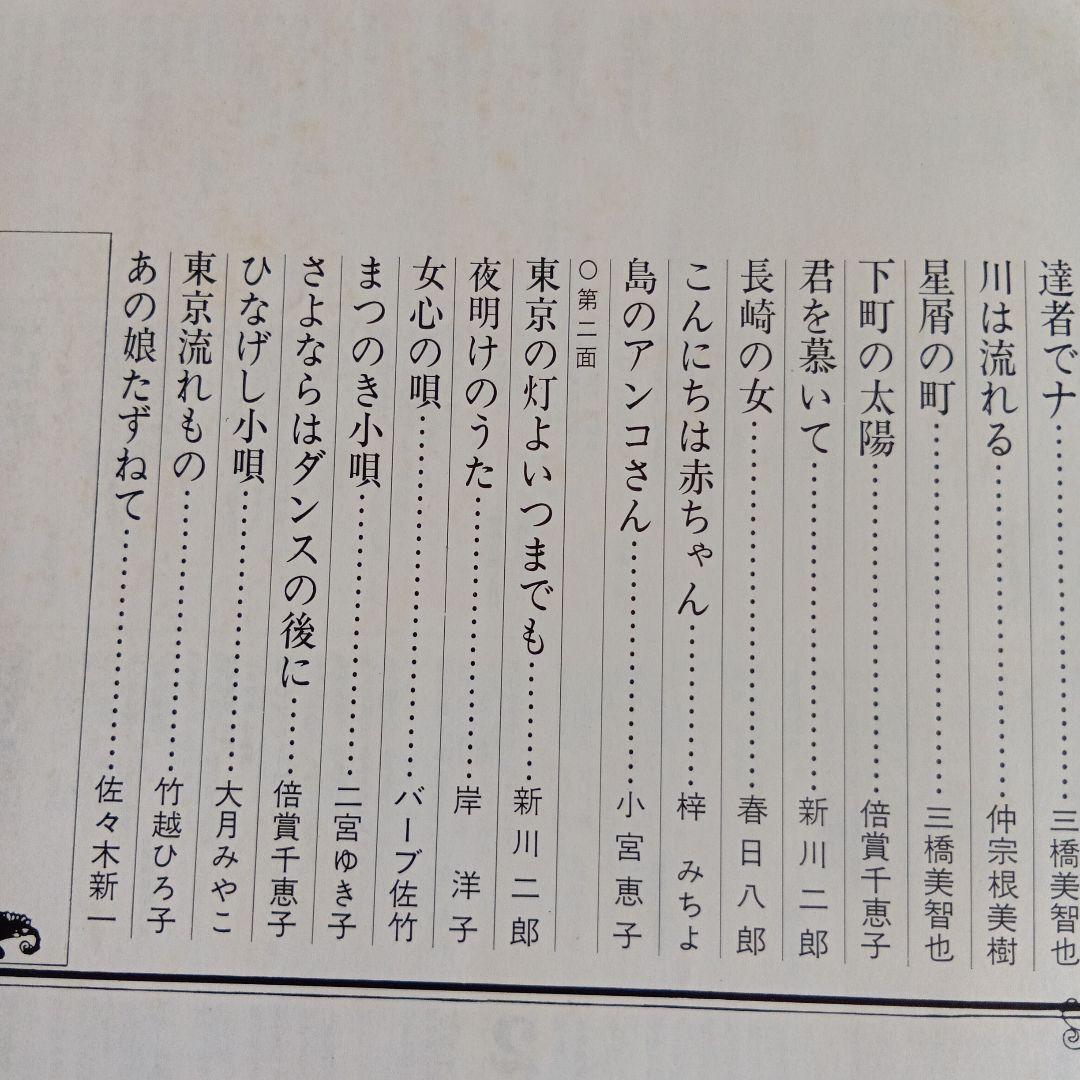 達者でナ…………三橋美智也
川は流れる…………仲宗根美樹
星屑の町…………三橋美智也
下町の太陽…………倍賞千恵子
君を慕いて…………新川二郎
長崎の女…………春日八郎
こんにちは赤ちゃん…………梓 みちよ
島のアンコさん…………小宮恵子
○第二面
東京の灯よいつまでも…………新川二郎
夜明けのうた…………岸 洋子
女心の唄…………バーブ佐竹
まつのき小唄…………二宮ゆき子
さよならはダンスの後に…………倍賞千恵子
ひなげし小唄…………大月みやこ
東京流れもの…………竹越ひろ子
あの娘たずねて…………佐々木新一